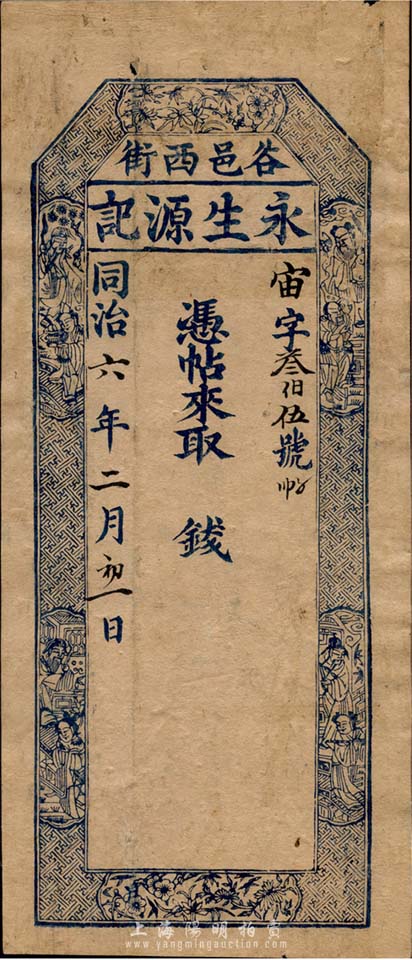 谷邑西街
永生源記
宙字叁伯伍號帖
憑帖來取 錢
同治六年二月初一日
上海陽明拍賣
www.yangmingauction.com